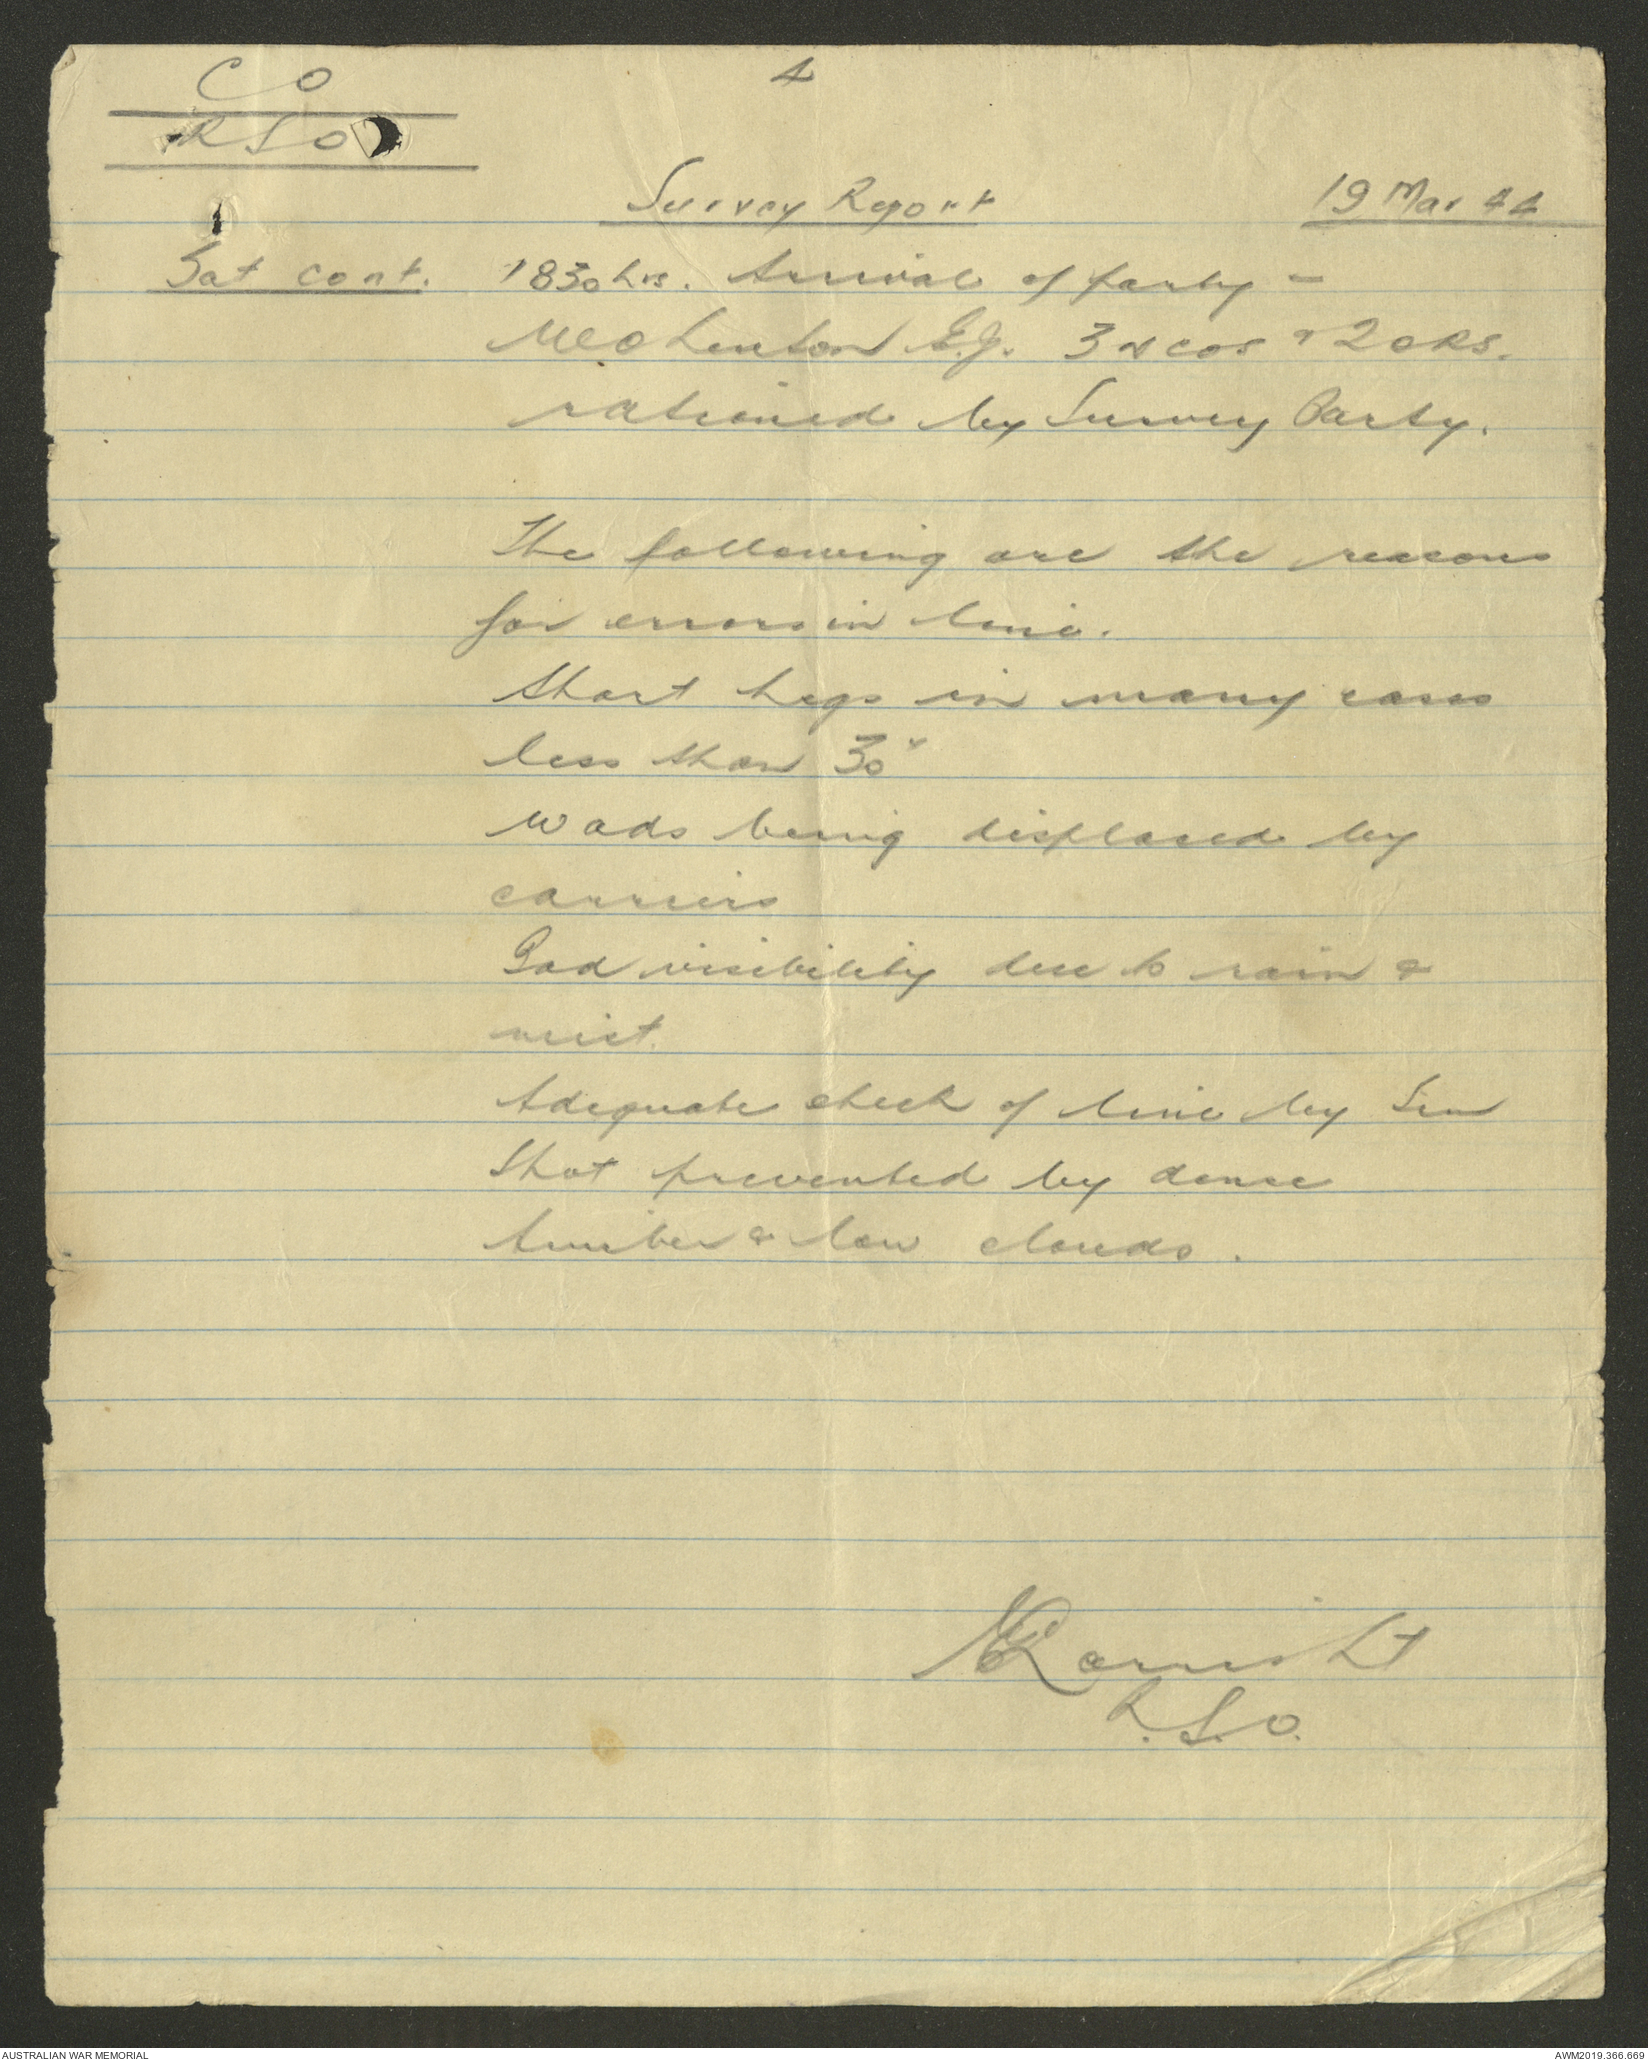 C O
4
R S O
Survey Report
19 Mar 44
Sat cont.
1830 hrs. Arrival of party -
3 NCOs & 2 ORS.
rationed by Survey Party.
The following are the reasons
for errors in line.
Short legs in many cases
less than 30"
Wads being displaced by
carriers
Bad visibility due to rain &
mist.
Adequate check of line by Sun
Shot prevented by dense
timber & low clouds.
Lt
R.S.O.
AUSTRALIAN WAR MEMORIAL
AWM2019.366.669